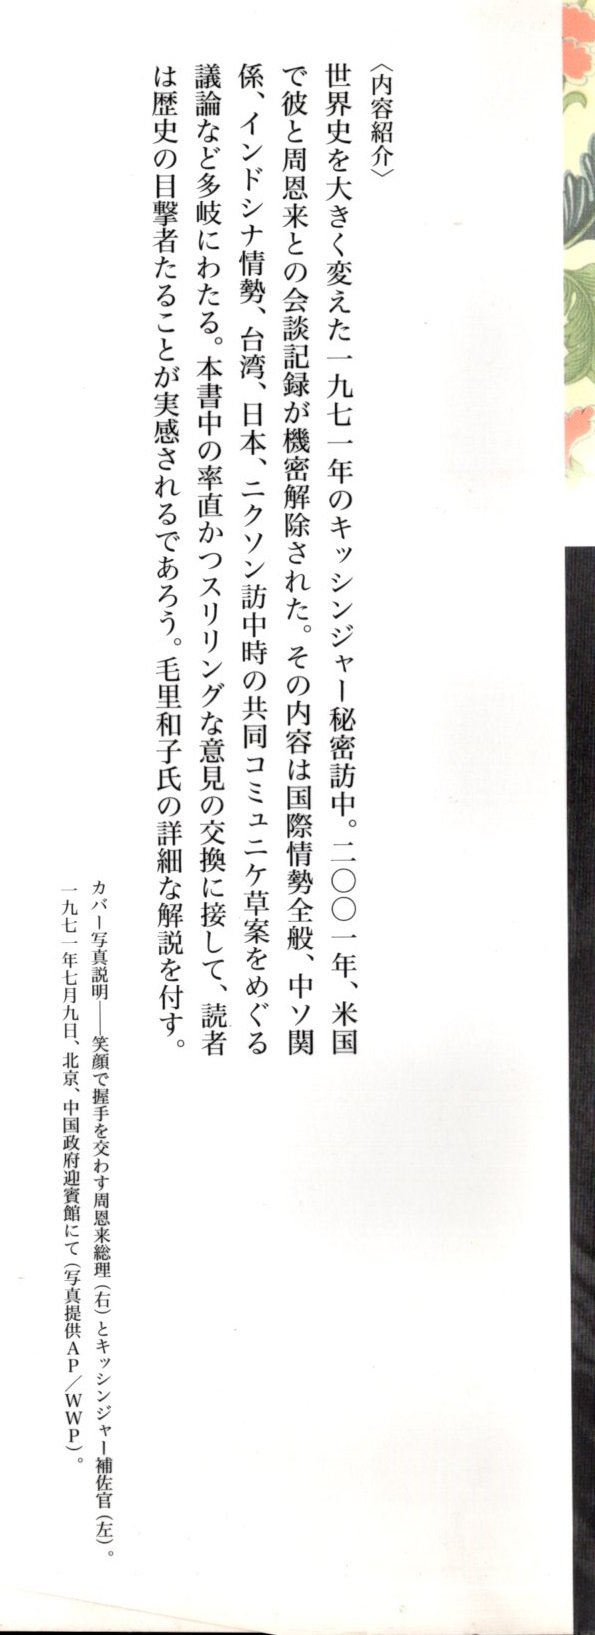 〈内容紹介〉
世界史を大きく変えた一九七一年のキッシンジャー秘密訪中。二〇〇一年、米国
で彼と周恩来との会談記録が機密解除された。その内容は国際情勢全般、中ソ関
係、インドシナ情勢、台湾、日本、ニクソン訪中時の共同コミュニケ草案をめぐる
議論など多岐にわたる。本書中の率直かつスリリングな意見の交換に接して、読者
は歴史の目撃者たることが実感されるであろう。毛里和子氏の詳細な解説を付す。
カバー写真説明――笑顔で握手を交わす周恩来総理（右）とキッシンジャー補佐官（左）。
一九七一年七月九日、北京、中国政府迎賓館にて（写真提供AP／WWP）。